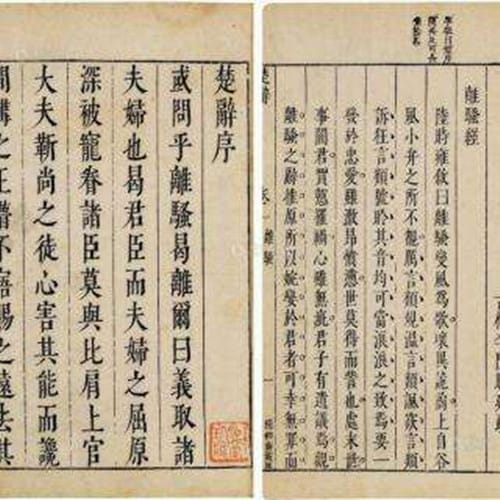 楚辭序
或問乎離騷曷離爾曰義取諸
夫婦也曷君臣而夫婦之屈原
深被寵眷諸臣莫與比肩上官
大夫靳尚之徒心害其能而讒
間構之王瞢不寤賜之遠去其
離騷經
陸時雍敘曰離騷變風為歌異詭尚上自谷
風小弁之所不覩厲言類規溫言類諷言類
訴狂言類號於其音均可當浪浪之致為要一
發於忠愛雖激昂憤懣世莫得而訾也處末
事闇君買愬罹心雖無疵君子有遺議焉觀
離騷之辭推原所以婉孌於君者可幸無罪而
楚辭
卷一 離騷
一